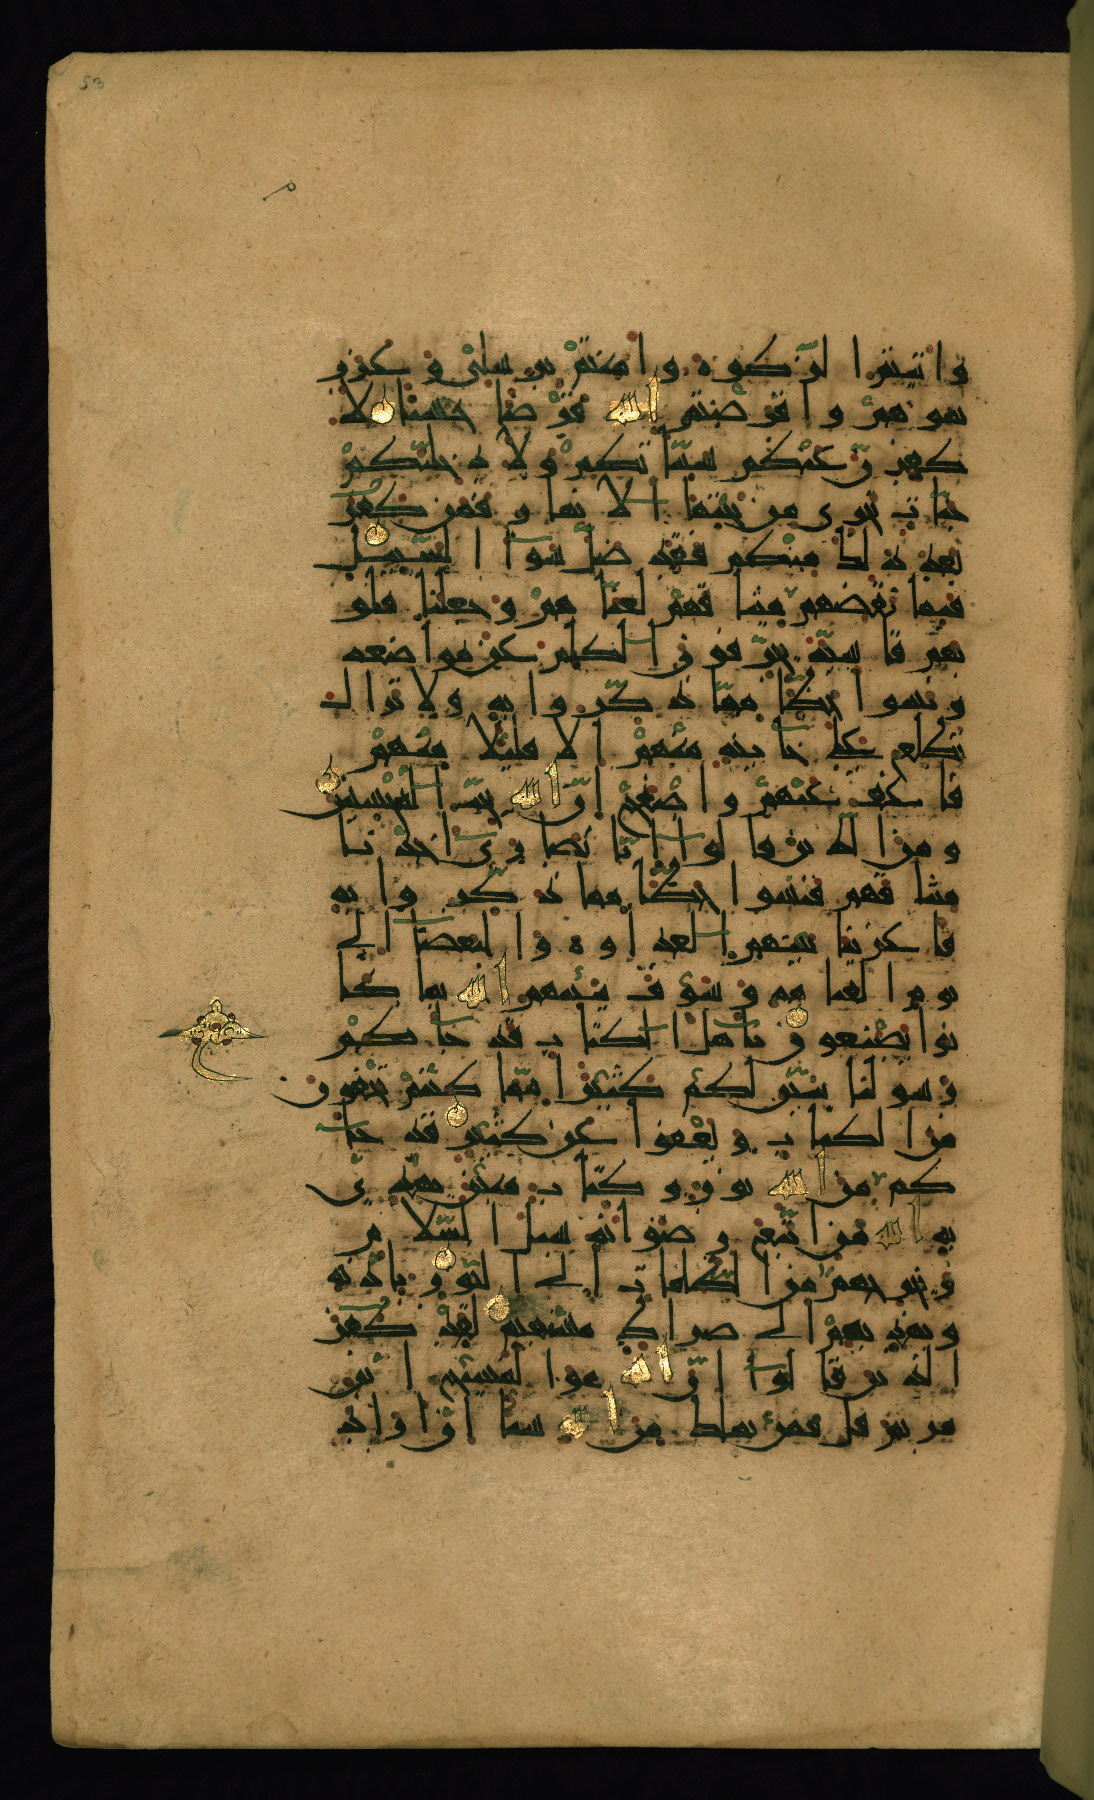 53
و اتيتم ا لز كوه و ا منتم بر سلى و عزر
تمو هم و ا قر ضتم ا لله قر ضا حسنا لا
كفر ن عنكم سيا تكم و لا د خلنكم
جنا ت تجر ى من تحتها ا لا نها ر فمن كفر
بعد ذ لك منكم فقد ضل سو ا ا لسبيل
فبما نقضهم ميثا قهم لعنا هم و جعلنا قلو
بهم قا سية يحر فو ن ا لكلم عن مو ا ضعه
و نسو ا حظا مما ذ كر و ا به و لا تز ا ل
تطلع على خا ينه منهم ا لا قليلا منهم
فا عف عنهم و ا صفح ا ن ا لله يحب ا لمحسنين
و من ا لذ ين قا لو ا ا نا نصا ر ى ا خذ نا
ميثا قهم فنسو ا حظا مما ذ كر و ا به
فا غر ينا بينهم ا لعد ا و ة و ا لبغضا ا لى
يو م ا لقيا مه و سو ف ينبئهم ا لله بما كا
نو ا يصنعو ن يا هل ا لكتا ب قد جا كم
ر سو لنا يبين لكم كثير ا مما كنتم تخفون
من ا لكتا ب و يعفو ا عن كثير قد جا
كم من ا لله نو ر و كتا ب مبين يهد ى
به ا لله من ا تبع ر ضو ا نه سبل ا لسلا م
و يخر جهم من ا لظلما ت ا لى ا لنو ر با ذ نه
و يهد يهم ا لى صر ا ط مستقيم لقد كفر
ا لذ ين قا لو ا ا ن ا لله هو ا لمسيح ا بن
مر يم قل فمن يملك من ا لله شيا ا ن ا ر ا د